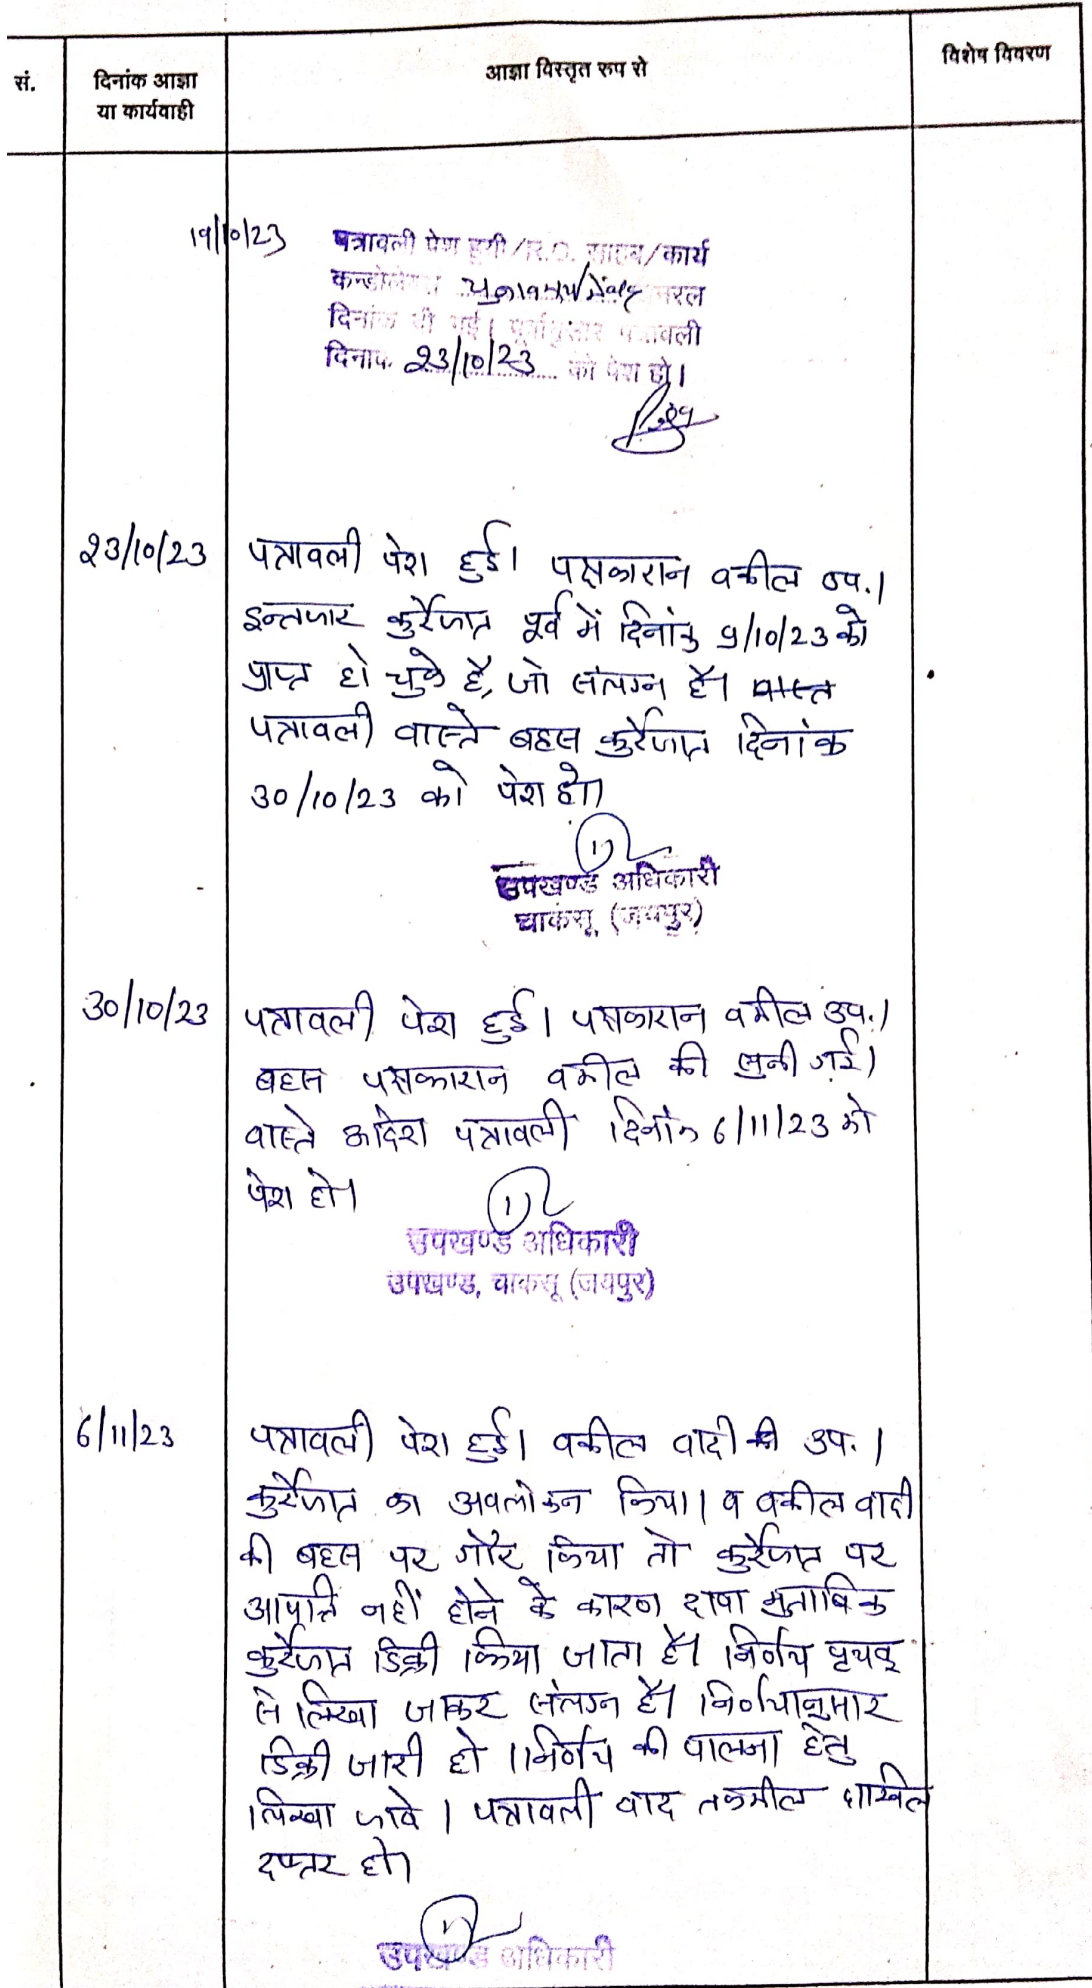 सं.
दिनांक आज्ञा
या कार्यवाही
आज्ञा विस्तृत रुप से
विशेष विवरण
19/10/23
पत्रावली पेश हुयी/R.O. साहब/कार्य
दिनांक दी गई। पूर्वानुसार पत्रावली
दिनांक 23/10/23 को पेश हो।
23/10/23
पत्रावली पेश हुई। पक्षकारान वकील उप.।
इन्तजार कुर्रेजात पूर्व में दिनांक 9/10/23 को
प्राप्त हो चुके है, जो संलग्न है।
पत्रावली वास्ते बहस कुर्रेजात दिनांक
30/10/23 को पेश हो।
उपखण्ड अधिकारी
चाकसू, (जयपुर)
30/10/23
पत्रावली पेश हुई। पक्षकारान वकील उप.।
बहस पक्षकारान वकील की सुनी गई।
वास्ते आदेश पत्रावली दिनांक 6/11/23 को
पेश हो।
उपखण्ड अधिकारी
उपखण्ड, चाकसू (जयपुर)
6/11/23
पत्रावली पेश हुई। वकील वादी उप.।
कुर्रेजात का अवलोकन किया। व वकील वादी
की बहस पर गौर किया तो कुर्रेजात पर
आपत्ति नहीं होने के कारण दावा मुताबिक
कुर्रेजात डिक्री किया जाता है। निर्णय पृथक
से लिखा जाकर संलग्न है। निर्णयानुसार
डिक्री जारी हो। निर्णय की पालना हेतु
लिखा जावे। पत्रावली बाद तकमील दाखिल
दफ्तर हो।
उपखण्ड अधिकारी